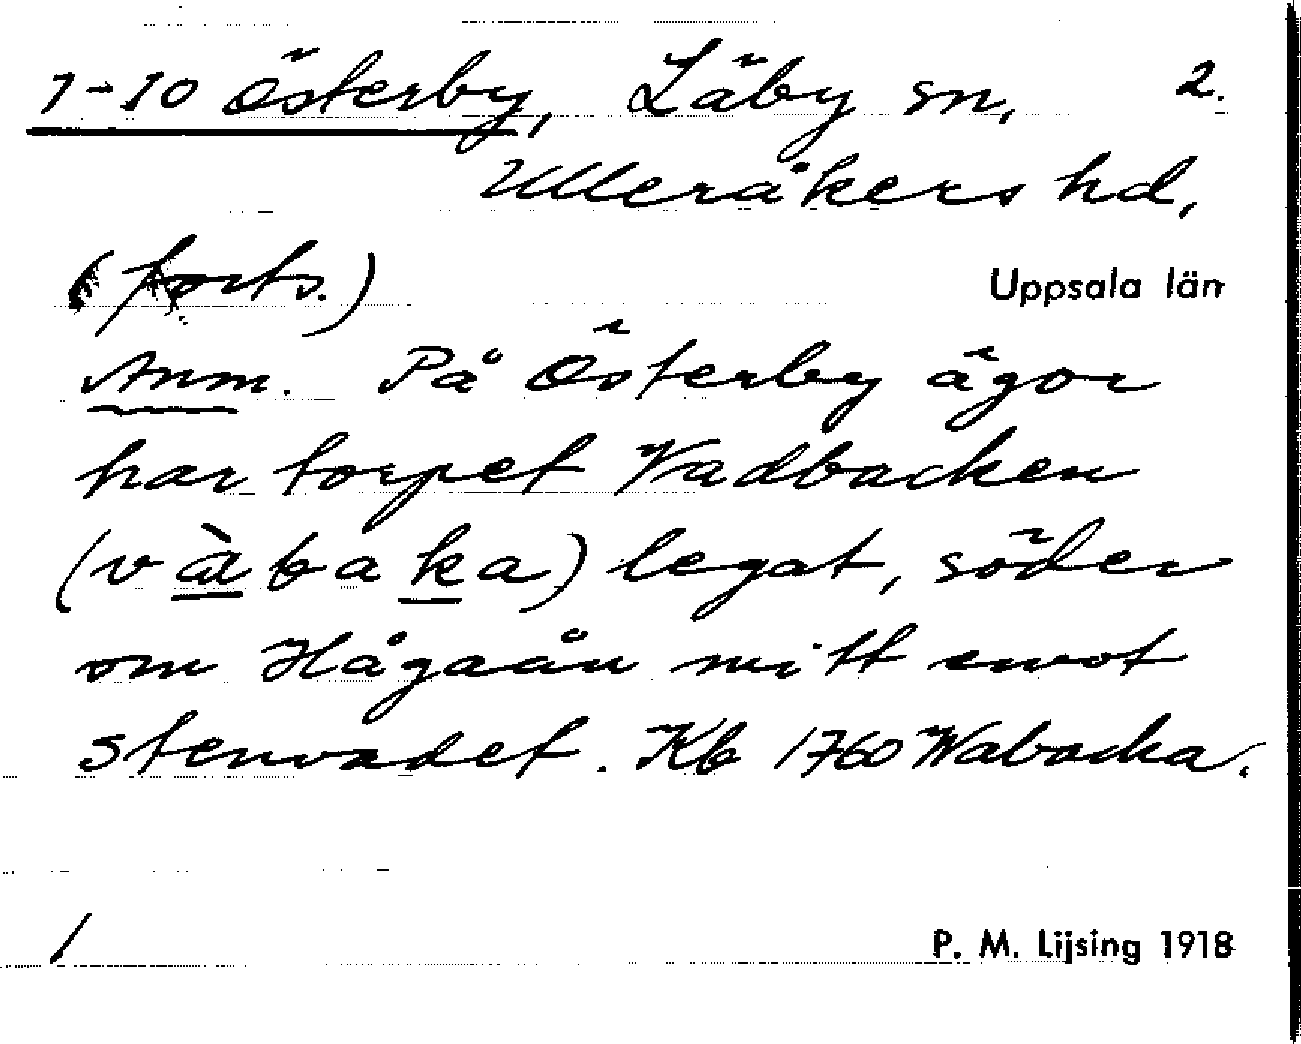 1-10 Österby, Läby sn, 2.
Ulleråkers hd,
(forts.)
Uppsala län
Anm. På Österby ägor
har torpet Vadbacken
(vàbaka) legat, söder
om Hågaån mitt emot
stenvadet. Kb 1760 Wabacka.
/
P. M. Lijsing 1918